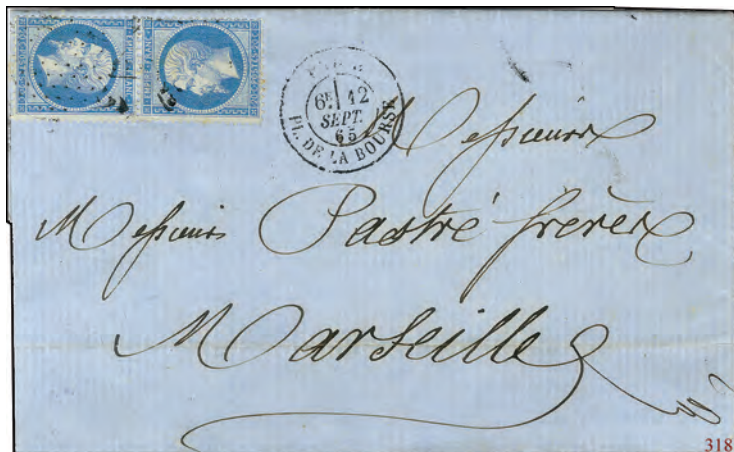 6E 12
SEPT.
65
PL. DE LA BOURSE
Messieurs
Messieurs Pastré frères
Marseille
318